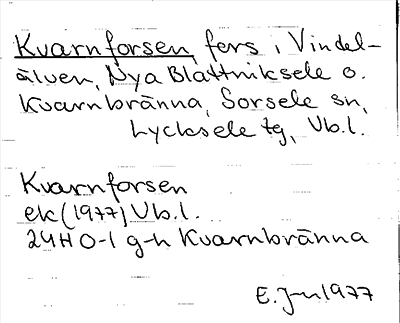 Kvarnforsen, fors i Vindel-
älven, Nya Blattniksele o.
Kvarnbränna, Sorsele sn,
Lycksele tg, Vb.l.
Kvarnforsen
ek (1977) Vb.l.
24H 0-1 g-h Kvarnbränna
E. J-n 1977